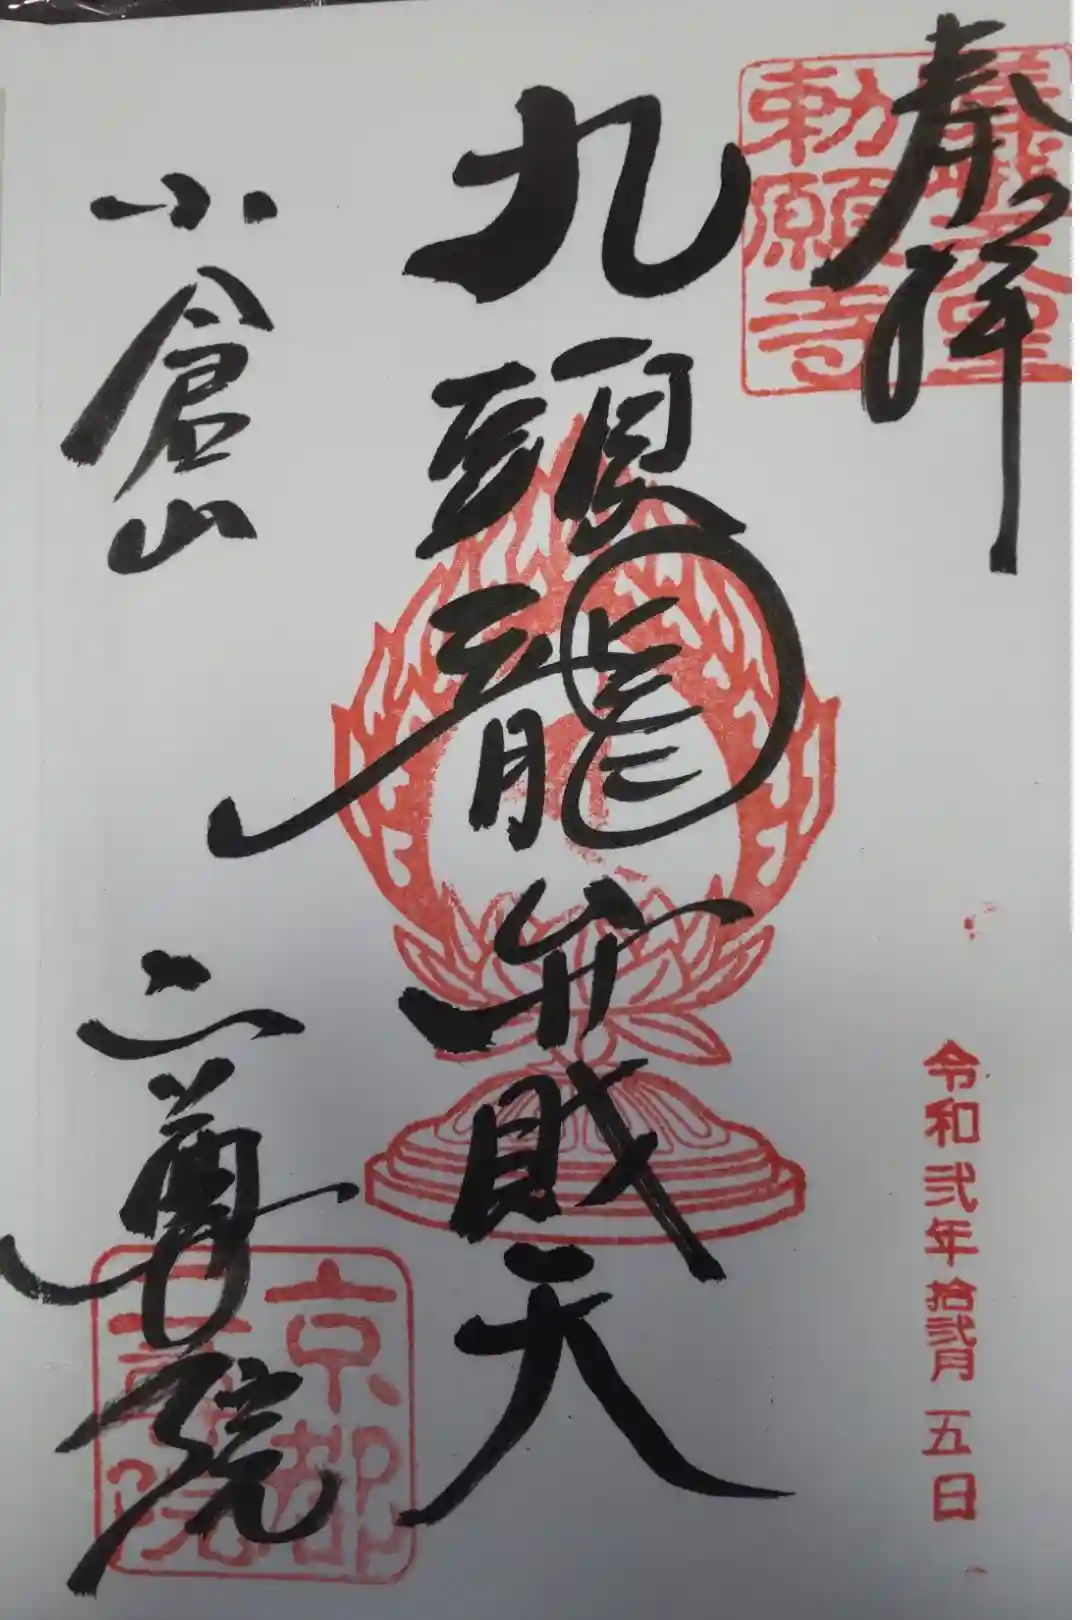 奉拝
勅願寺
令和弐年拾弐月五日
九頭龍弁財天
小倉山
二尊院
京都
二尊院